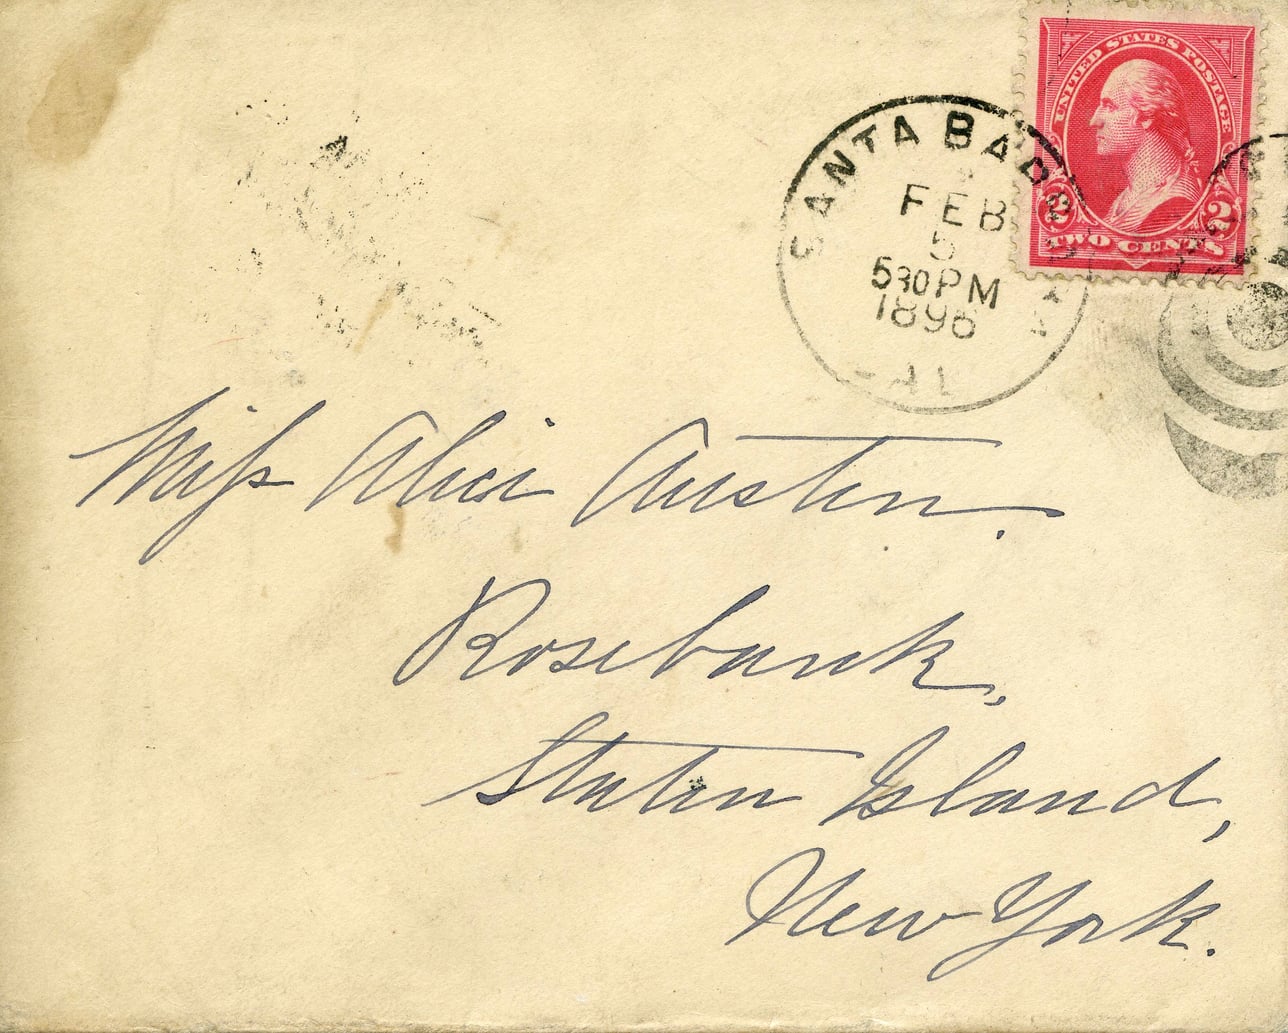 UNITED STATES POSTAGE
2 2
TWO CENTS
SANTA BARBARA
FEB
5
530PM
1896
CAL
Miss Alice Austen.
Rosebank,
Staten Island,
New York.